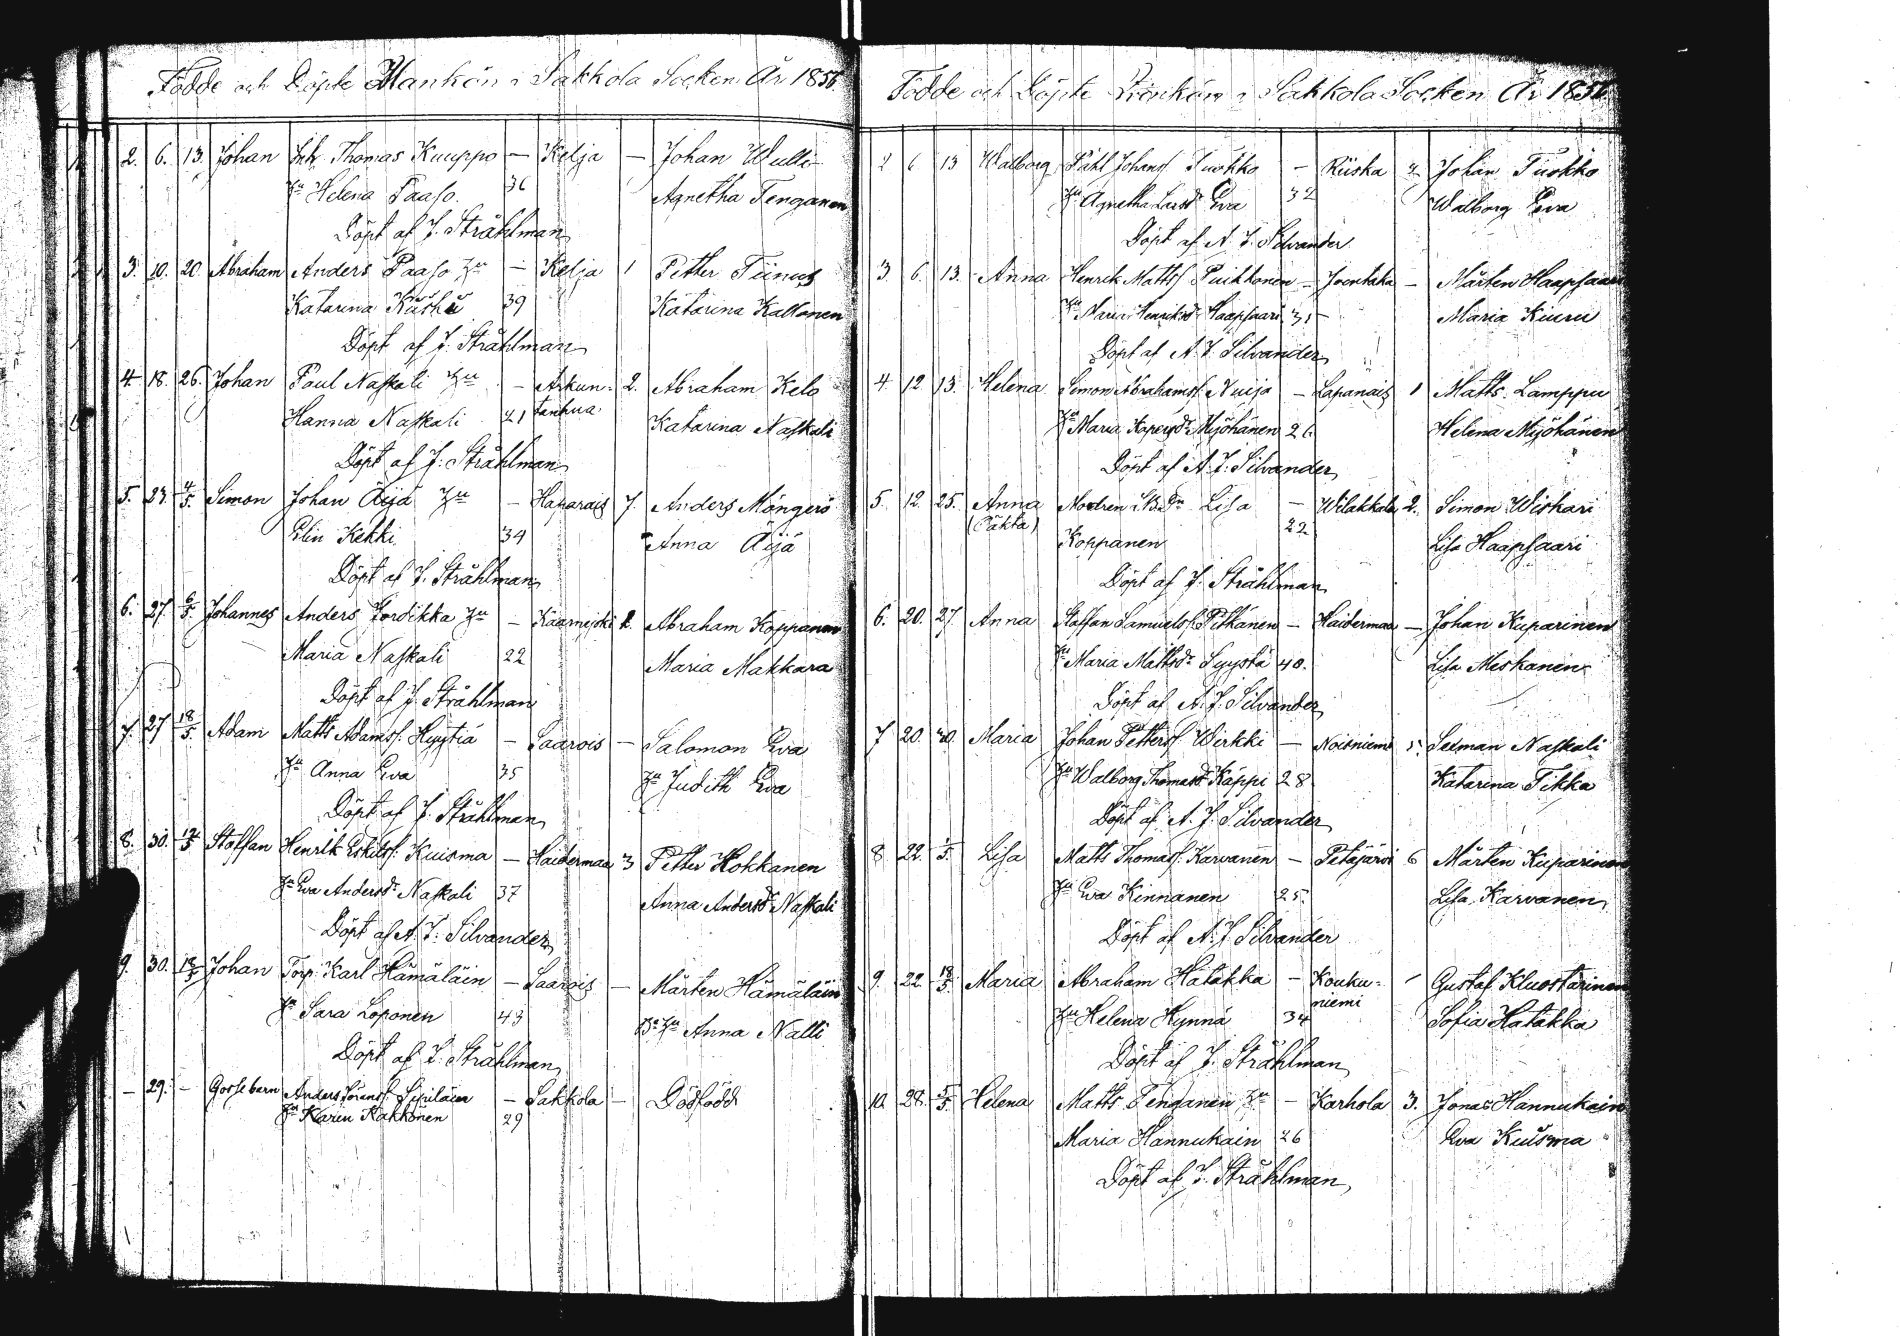 Födde och Döpte Mankön i Sakkola Socken År 1856.
2. 6. 13. Johan Inh. Thomas Kuuppo — Kelja — Johan Wulli
Hu Helena Paaso. 36 Agnetha Tenganen
Döpt af J. Stråhlman
3. 10. 20. Abraham Anders Paaso Hu — Kelja 1 Petter Tiinus
Katarina 39 Katarina Kallonen
Döpt af J. Stråhlman
4. 18. 26. Johan Paul Naskali Hu — Arkun- 2. Abraham Kelo
Hanna Naskali 21 tanhua. Katarina Naskali
Döpt af J. Stråhlman
5. 23. 4/5. Simon Johan Äijä Hu — Haparais 7. Anders Möngerö
Elin Kekki. 34 Anna Äijä
Döpt af J. Stråhlman
6. 27. 6/5. Johannes Anders Hu — 2. Abraham Koppanen
Maria Naskali 22 Maria Makkara
Döpt af J. Stråhlman
7. 27 18/5. Adam Matts Adamss. Hyytiä — Saarois — Salomon Eva
Hu Anna Eva 35 Hu Judith Eva
Döpt af J. Stråhlman
8. 30. Staffan Henrik Eskilss. Kuisma — Haidermaa 3 Petter Hokkanen
Hu Eva Andersdr Naskali 37 Anna Andersdr Naskali
Döpt af A. J. Silvander
9. 30. 18/5 Johan Torp. Karl Hämäläin — Saarois — Mårten Hämäläin
Hu Sara Loponen 43 Anna Nalli
Döpt af J. Stråhlman
— 29. — Gossebarn Anders — Sakkola — Dödfödd
Hu Karin Kakkonen 29
Födde och Döpte Qvinkön i Sakkola Socken År 1856.
2 6 13 Walborg Påhl Johanss. Tuokko — Riiska 2. Johan Tuokko
Hu Agnetha Larsdr Eva 32 Walborg Eva
Döpt af A. J. Silvander
3. 6. 13. Anna Henrik Mattss. Puikkonen — — Mårten Haapsaari
Hu Maria Henriksdr Haapsaari 31 Maria Kiuru
Döpt af A. J. Silvander
4 12 13. Helena Simon Abrahamss. Nuija — Lapanais 1 Matts Lamppu
Hu Maria Myöhänen 26. Helena Myöhänen
Döpt af A. J. Silvander
5. 12 25. Anna Modren Lisa — Wilakkala 2. Simon Wiskari
(Oäkta) Koppanen 22 Lisa Haapsaari
Döpt af J. Stråhlman
6. 20. 27. Anna Staffan Samuelss. Pitkänen — Haidermaa — Johan Kuparinen
Hu Maria Mattsdr Syystä 40. Lisa Meskanen
Döpt af A. J. Silvander
7 20 30. Maria Johan Petterss. Wirkki — Noisniemi 5. Seeman Naskali
Hu Walborg Thomasdr Käppi 28 Katarina Tikka
Döpt af A. J. Silvander
8 22. 1/5. Lisa Matts Thomass. Karvanen — Petäjärvi 6 Mårten Kuparinen
Hu Eva Kinnanen 25. Lisa Karvanen
Döpt af A. J. Silvander
9. 22. 18/5. Maria Abraham Hatakka — Kouku- — Gustaf Kluostarinen
Hu Helena Hynnä 34 niemi Sofia Hatakka
Döpt af J. Stråhlman
10. 28. 5/5. Helena Matts Tenganen Hu — Karhola 3. Jonas Hannukain
Maria Hannukain 26 Eva Kuisma
Döpt af J. Stråhlman